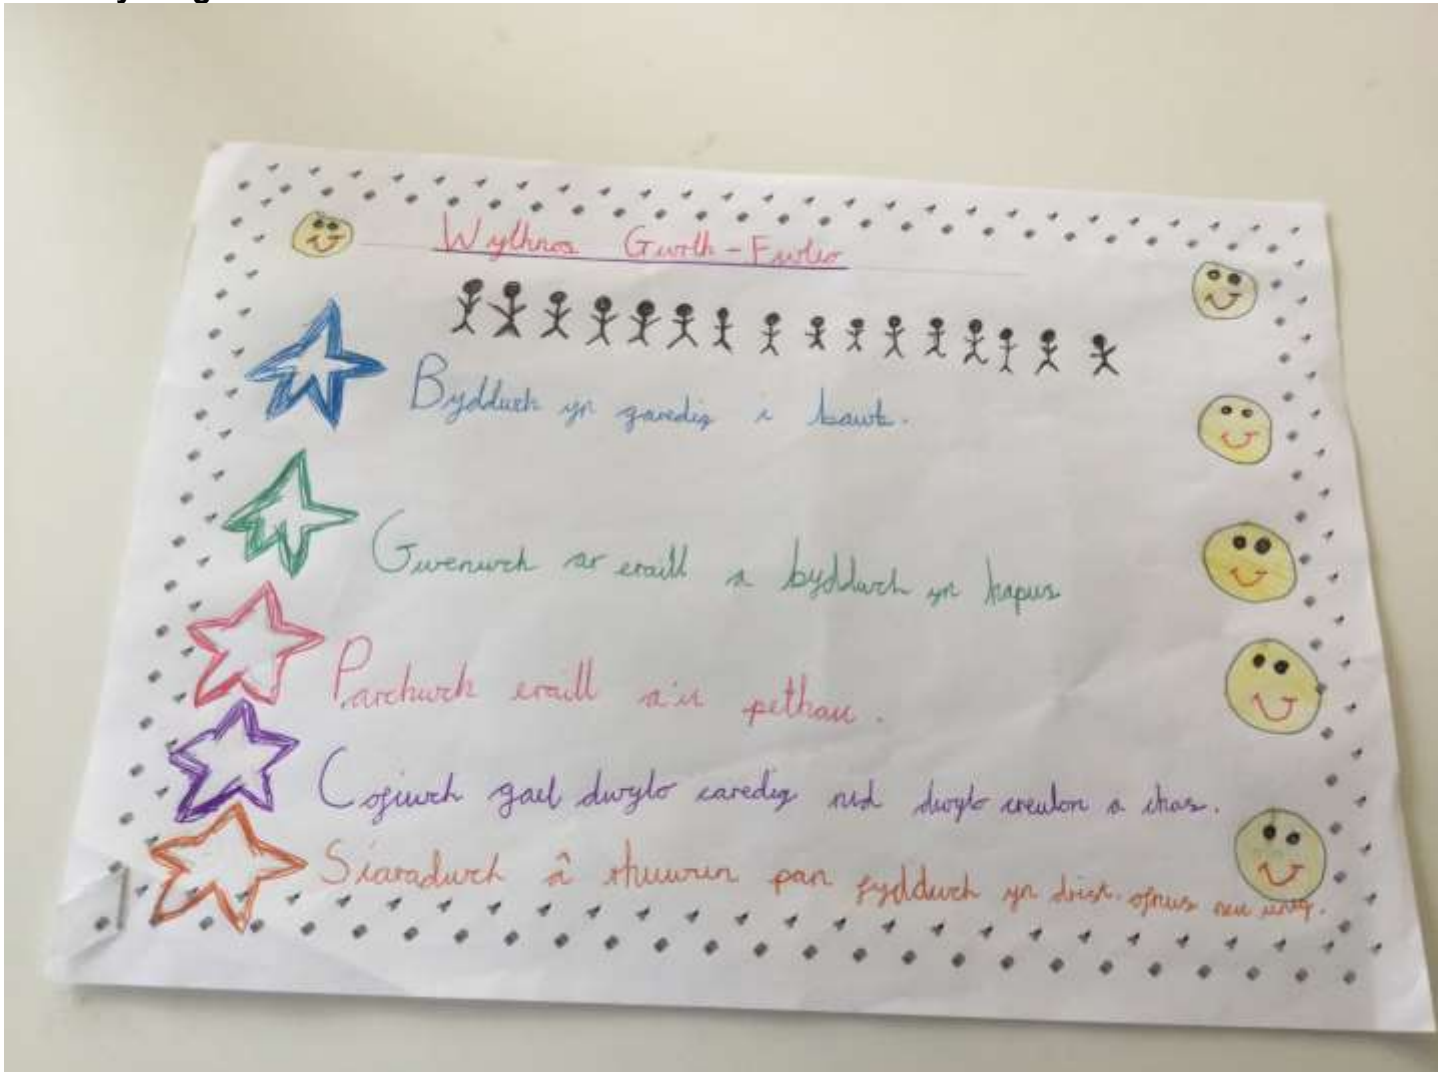 Wythnos Gwrth-Fwlio
Byddwch yn garedig i bawb.
Gwenwch ar eraill a byddwch yn hapus
Parchwch eraill a'u pethau.
Cofiwch gael dwylo caredig nid dwylo creulon a chas.
Siaradwch â rhywun pan fyddwch yn drist. ofnus neu unig.